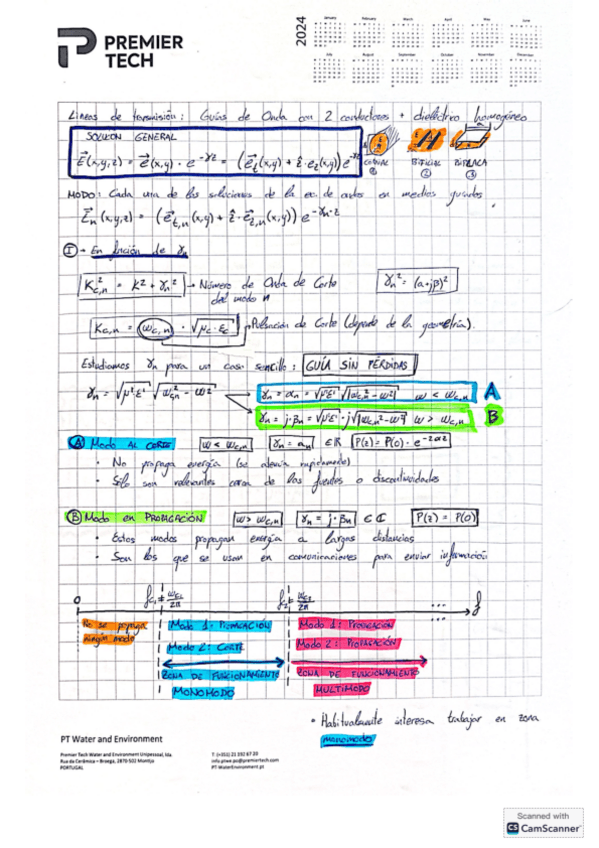 PREMIER TECH
2024
January February March April May June
July August September October November December
Lineas de transmisión: Guías de Onda con 2 conductores + dieléctrico homogéneo
SOLUCION GENERAL
E⃗(x,y,z) = e⃗(x,y) · e^-γz = (e⃗t(x,y) + ẑ · ez(x,y)) e^-γz
COAXIAL ① BIFILAR ② BIPLACA ③
MODO: Cada una de las soluciones de la ec. de ondas en medios guiados.
E⃗n(x,y,z) = (e⃗t,n(x,y) + ẑ · e⃗z,n(x,y)) e^-γn·z
Ⅰ - En función de γn
K²c,n = K² + γn² → Número de Onda de Corte del modo n
γn² = (α+jβ)²
Kc,n = ωc,n · √μc·εc → Pulsación de Corte (depende de la geometría).
Estudiamos γn para un caso sencillo: GUÍA SIN PÉRDIDAS
γn = √μ'ε' √ω²c,n - ω²
γn = αn = √μ'ε' √|ω²c,n - ω²| ω < ωc,n A
γn = j·βn = √μ'ε' · j√|ω²c,n - ω²| ω > ωc,n B
Ⓐ Modo AL CORTE ω < ωc,n γn = αn ∈ℝ P(z) = P(0) · e^-2αz
· No propaga energía (se atenúa rapidamente)
· Sólo son relevantes cerca de las fuentes o discontinuidades
Ⓑ Modo en PROPAGACIÓN ω > ωc,n γn = j·βn ∈ ℂ P(z) = P(0)
· Estos modos propagan energía a largas distancias
· Son los que se usan en comunicaciones para enviar información
0 fc1 = ωc1/2π fc2 = ωc2/2π ... f
No se propaga ningún modo
Modo 1: PROPAGACIÓN
Modo 2: CORTE
ZONA DE FUNCIONAMIENTO
MONOMODO
Modo 1: PROPAGACIÓN
Modo 2: PROPAGACIÓN
ZONA DE FUNCIONAMIENTO
MULTIMODO
...
• Habitualmente interesa trabajar en zona
monomodo
PT Water and Environment
Premier Tech Water and Environment Unipessoal, lda.
Rua da Cerâmica – Broega, 2870-502 Montijo
PORTUGAL
T: (+351) 21 192 67 20
info.ptwe.po@premiertech.com
PT-WaterEnvironment.pt
Scanned with
CS CamScanner